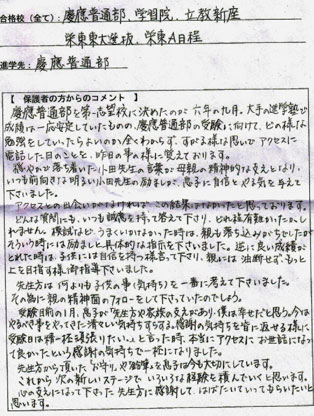 合格校（全て）：慶應普通部、学習院、立教新座
栄東東大選抜、栄東A日程
進学先：慶應普通部
【 保護者の方からのコメント 】
慶應普通部を第一志望校に決めたのが六年の九月。大手の進学塾で
成績は一応安定していたものの、慶應普通部の受験に向けて、どの様な
勉強をしていたらよいのか全くわからず、すがる様な思いでアクセスに
電話した日のことを、昨日の事の様に覚えております。
穏やかで落ち着いた小田先生の言葉が母親の精神的な支えとなり、
いつも前向きな明るい小田先生の励ましが、息子に自信とやる気を与えて
下さいました。
アクセスとの出会いがなければ、この結果はなかったと思っております。
どんな質問にも、いつも誠意を持って答えて下さり、どれ程有難かったかし
れません。模試などで、うまくいかなかった時は、親も落ち込みがちでしたが
そういう時には励ましと具体的な指示を下さいました。逆に良い成績が
とれた時は、子供には自信を持つ様言って下さり、親には油断せず、もっと
上を目指す様、御指導下さいました。
先生方は何よりも子供の事（気持ち）を一番に考えて下さいました。
その為に親の精神面のフォローをして下さっていたのでしょう。
受験目前の1月、息子が「先生方や家族の支えがあり、僕は幸せだと思う。今は
やるべき事をやってきた清々しい気持ちすらする。感謝の気持ちを皆に返せる様に
受験日は精一杯頑張りたい。」と言った時、本当にアクセスにお世話になって
良かったという感謝の気持ちで一杯になりました。
先生方から頂いた「お守り」や「鉛筆」を息子は今も大切にしています。
これから次の新しいステージで、いろいろな経験を積んでいくと思います。
心の支えになって下さった先生方に感謝して、はばたいていってもらいたいと
思います。